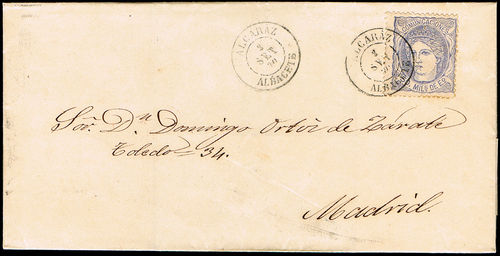 ALCARAZ
ALBACETE
ALCARAZ
ALBACETE
COMUNICACIONES
Sor. Dn. Domingo Ortiz de Zárate
Toledo = 34.
Madrid.